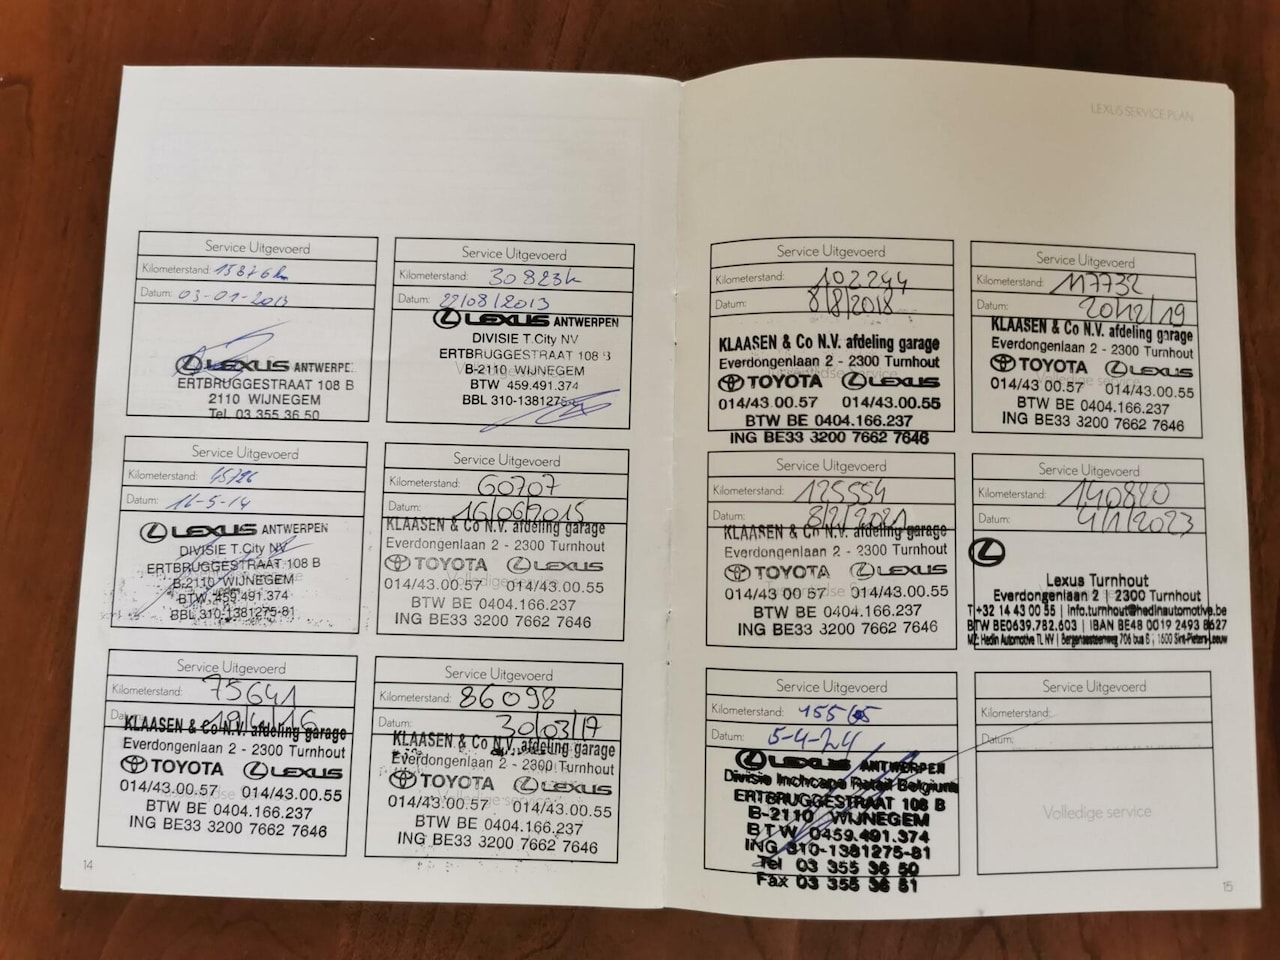 LEXUS SERVICE PLAN
Service Uitgevoerd
Kilometerstand: 15876 km
Datum: 03-01-2013
LEXUS ANTWERPEN
ERTBRUGGESTRAAT 108 B
2110 WIJNEGEM
Tel. 03 355 36 50
Service Uitgevoerd
Kilometerstand: 30823k
Datum: 22/08/2013
LEXUS ANTWERPEN
DIVISIE T.City NV
ERTBRUGGESTRAAT 108 B
B-2110 WIJNEGEM
BTW 459.491.374
BBL 310-1381275-81
Service Uitgevoerd
Kilometerstand:
Datum: 16-5-14
LEXUS ANTWERPEN
DIVISIE T.City NV
ERTBRUGGESTRAAT 108 B
B-2110 WIJNEGEM
BTW 459.491.374
BBL 310-1381275-81
Service Uitgevoerd
Kilometerstand: 60707
Datum: 16/06/2015
KLAASEN & Co N.V. afdeling garage
Everdongenlaan 2 - 2300 Turnhout
TOYOTA LEXUS
Volledige service
014/43.00.57 014/43.00.55
BTW BE 0404.166.237
ING BE33 3200 7662 7646
Service Uitgevoerd
Kilometerstand: 75641
KLAASEN & Co N.V. afdeling garage
Everdongenlaan 2 - 2300 Turnhout
TOYOTA LEXUS
014/43.00.57 014/43.00.55
BTW BE 0404.166.237
ING BE33 3200 7662 7646
Service Uitgevoerd
Kilometerstand: 86098
Datum: 30/03/17
KLAASEN & Co N.V. afdeling garage
Everdongenlaan 2 - 2300 Turnhout
TOYOTA LEXUS
014/43.00.57 014/43.00.55
BTW BE 0404.166.237
ING BE33 3200 7662 7646
14
Service Uitgevoerd
Kilometerstand: 102244
Datum: 8/8/2018
KLAASEN & Co N.V. afdeling garage
Everdongenlaan 2 - 2300 Turnhout
TOYOTA LEXUS
014/43 00.57 014/43.00.55
BTW BE 0404.166.237
ING BE33 3200 7662 7646
Service Uitgevoerd
Kilometerstand: 117732
Datum: 20/12/19
KLAASEN & Co N.V. afdeling garage
Everdongenlaan 2 - 2300 Turnhout
TOYOTA LEXUS
Volledige service
014/43 00.57 014/43.00.55
BTW BE 0404.166.237
ING BE33 3200 7662 7646
Service Uitgevoerd
Kilometerstand: 125554
Datum: 8/2/2021
KLAASEN & Co N.V. afdeling garage
Everdongenlaan 2 - 2300 Turnhout
TOYOTA LEXUS
014/43 00 57 014/43.00.55
BTW BE 0404.166.237
ING BE33 3200 7662 7646
Service Uitgevoerd
Kilometerstand: 140820
Datum: 4/1/2023
Lexus Turnhout
Everdongenlaan 2 | 2300 Turnhout
T +32 14 43 00 55 | info.turnhout@hedinautomotive.be
BTW BE0639.782.603 | IBAN BE48 0019 2493 8627
MZ: Hedin Automotive TL NV | Bergensesteenweg 706 bus B | 1600 Sint-Pieters-Leeuw
Service Uitgevoerd
Kilometerstand:
Datum: 5-4-24
LEXUS ANTWERPEN
Divisie Inchcape Retail Belgium
ERTBRUGGESTRAAT 108 B
B-2110 WIJNEGEM
BTW 0459.491.374
ING 310-1381275-81
Tel 03 355 36 50
Fax 03 355 36 51
Service Uitgevoerd
Kilometerstand:
Datum:
Volledige service
15